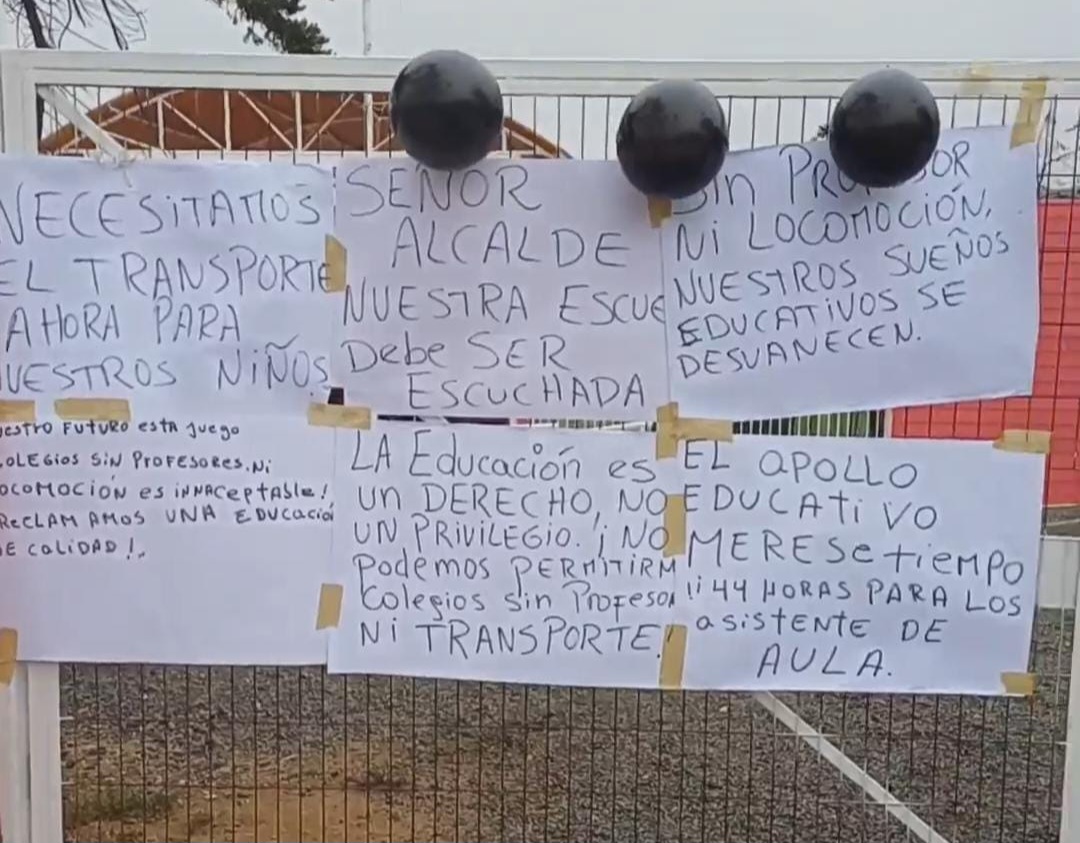 NECESITAMOS
EL TRANSPORTE
AHORA PARA
NUESTROS NIÑOS
SEÑOR
ALCALDE
NUESTRA ESCUE
Debe SER
ESCUCHADA
SIN PROFESOR
Ni LOCOMOCIÓN,
NUESTROS SUEÑOS
EDUCATIVOS SE
DESVANECEN.
uestro FUTURO esta juego
COLEGIOS SiN PROFESORES. Ni
LOCOMOCIÓN es iNNACeptable!
RECLAMAMOS UNA EDUCACIÓ
DE CALIDAD!.
LA Educación es
un DERECHO, NO
UN PRIVILEGIO. ¡ NO
Podemos PERMITIRM
Colegios Sin Profesor
Ni TRANSPORTE!
EL APOLLO
EDUCATIVO
MERESe tiempo
¡¡ 44 HORAS PARA LOS
asistente DE
AULA.